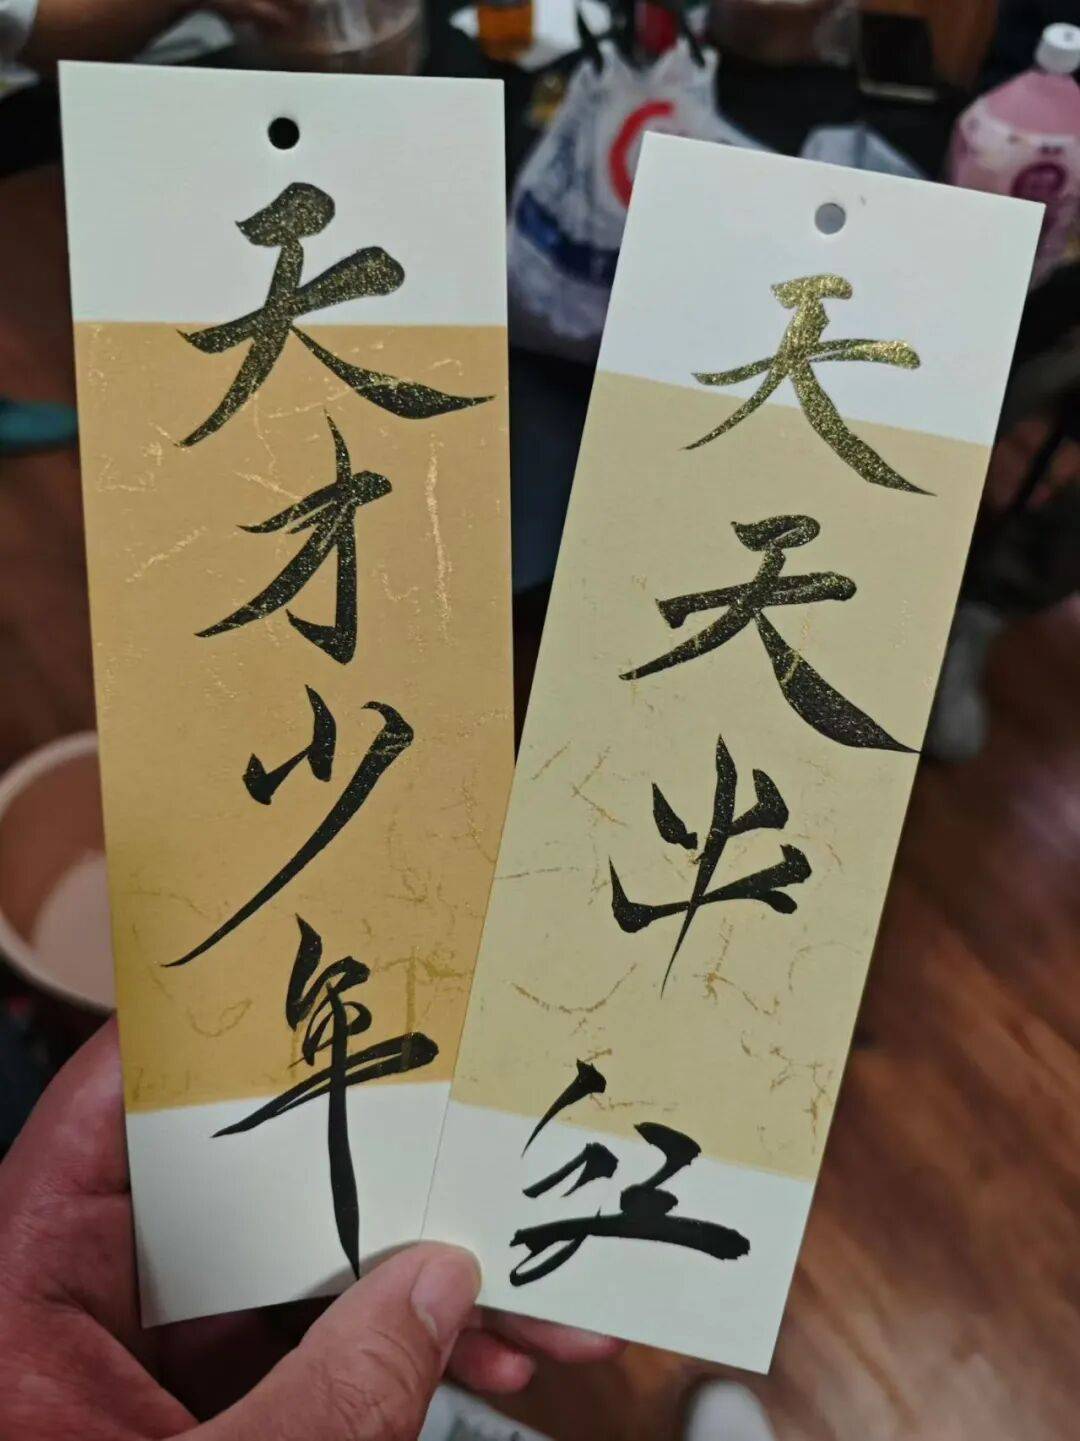 天才少年
天天出红